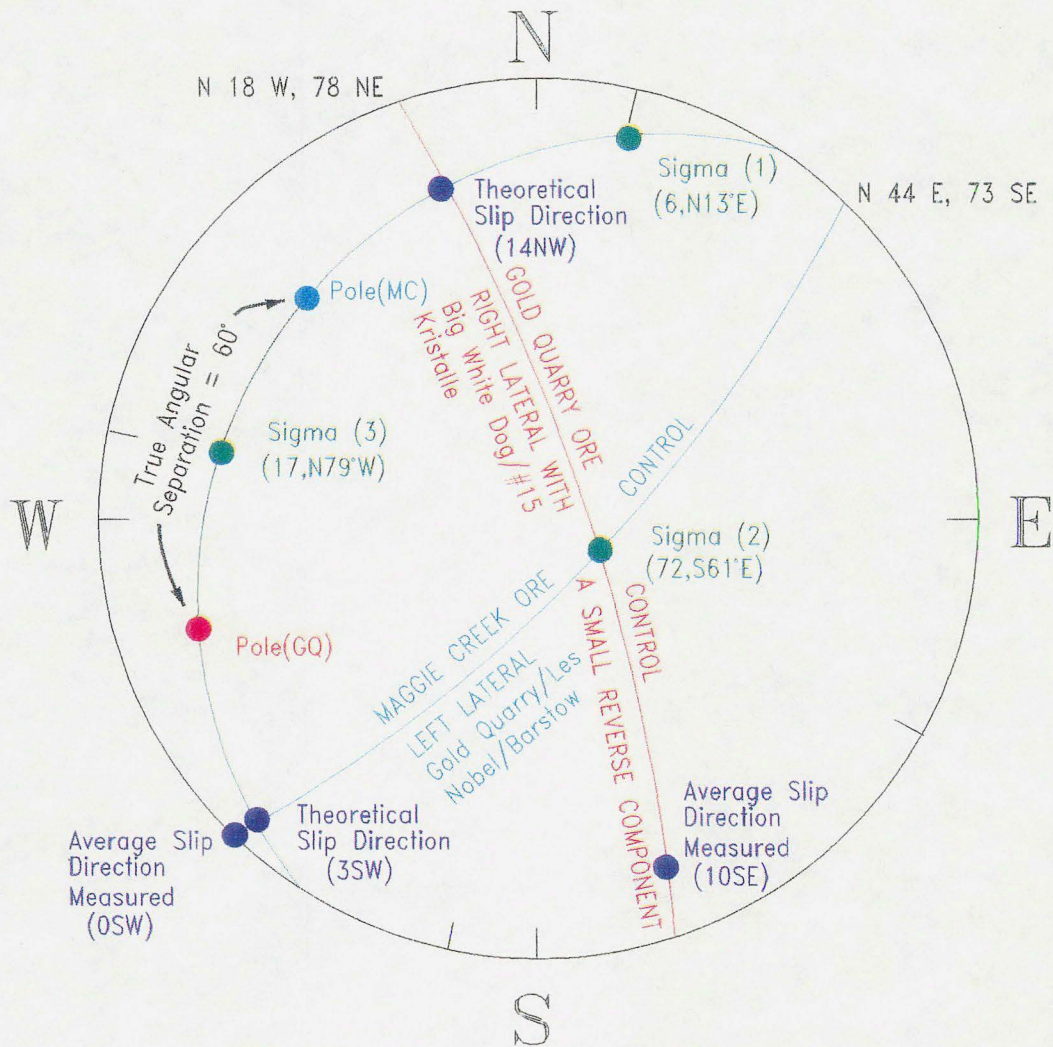 N
N 18 W, 78 NE
Sigma (1)
(6,N13°E)
N 44 E, 73 SE
Theoretical
Slip Direction
(14NW)
Pole(MC)
True Angular
Separation = 60°
GOLD QUARRY ORE
CONTROL
RIGHT LATERAL WITH
A SMALL REVERSE COMPONENT
Big White Dog/#15
Kristalle
Sigma (3)
(17,N79°W)
W
E
Sigma (2)
(72,S61°E)
Pole(GQ)
MAGGIE CREEK ORE
CONTROL
LEFT LATERAL
Gold Quarry/Les
Nobel/Barstow
Average Slip
Direction
Measured
(0SW)
Theoretical
Slip Direction
(3SW)
Average Slip
Direction
Measured
(10SE)
S